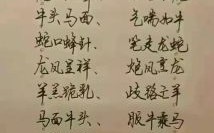 牛头马面、 气喘如牛
蛇口蜂针、 笔走龙蛇
龙凤呈祥、 炮凤烹龙
羊羔跪乳、 歧路亡羊
马面牛头、 服牛乘马